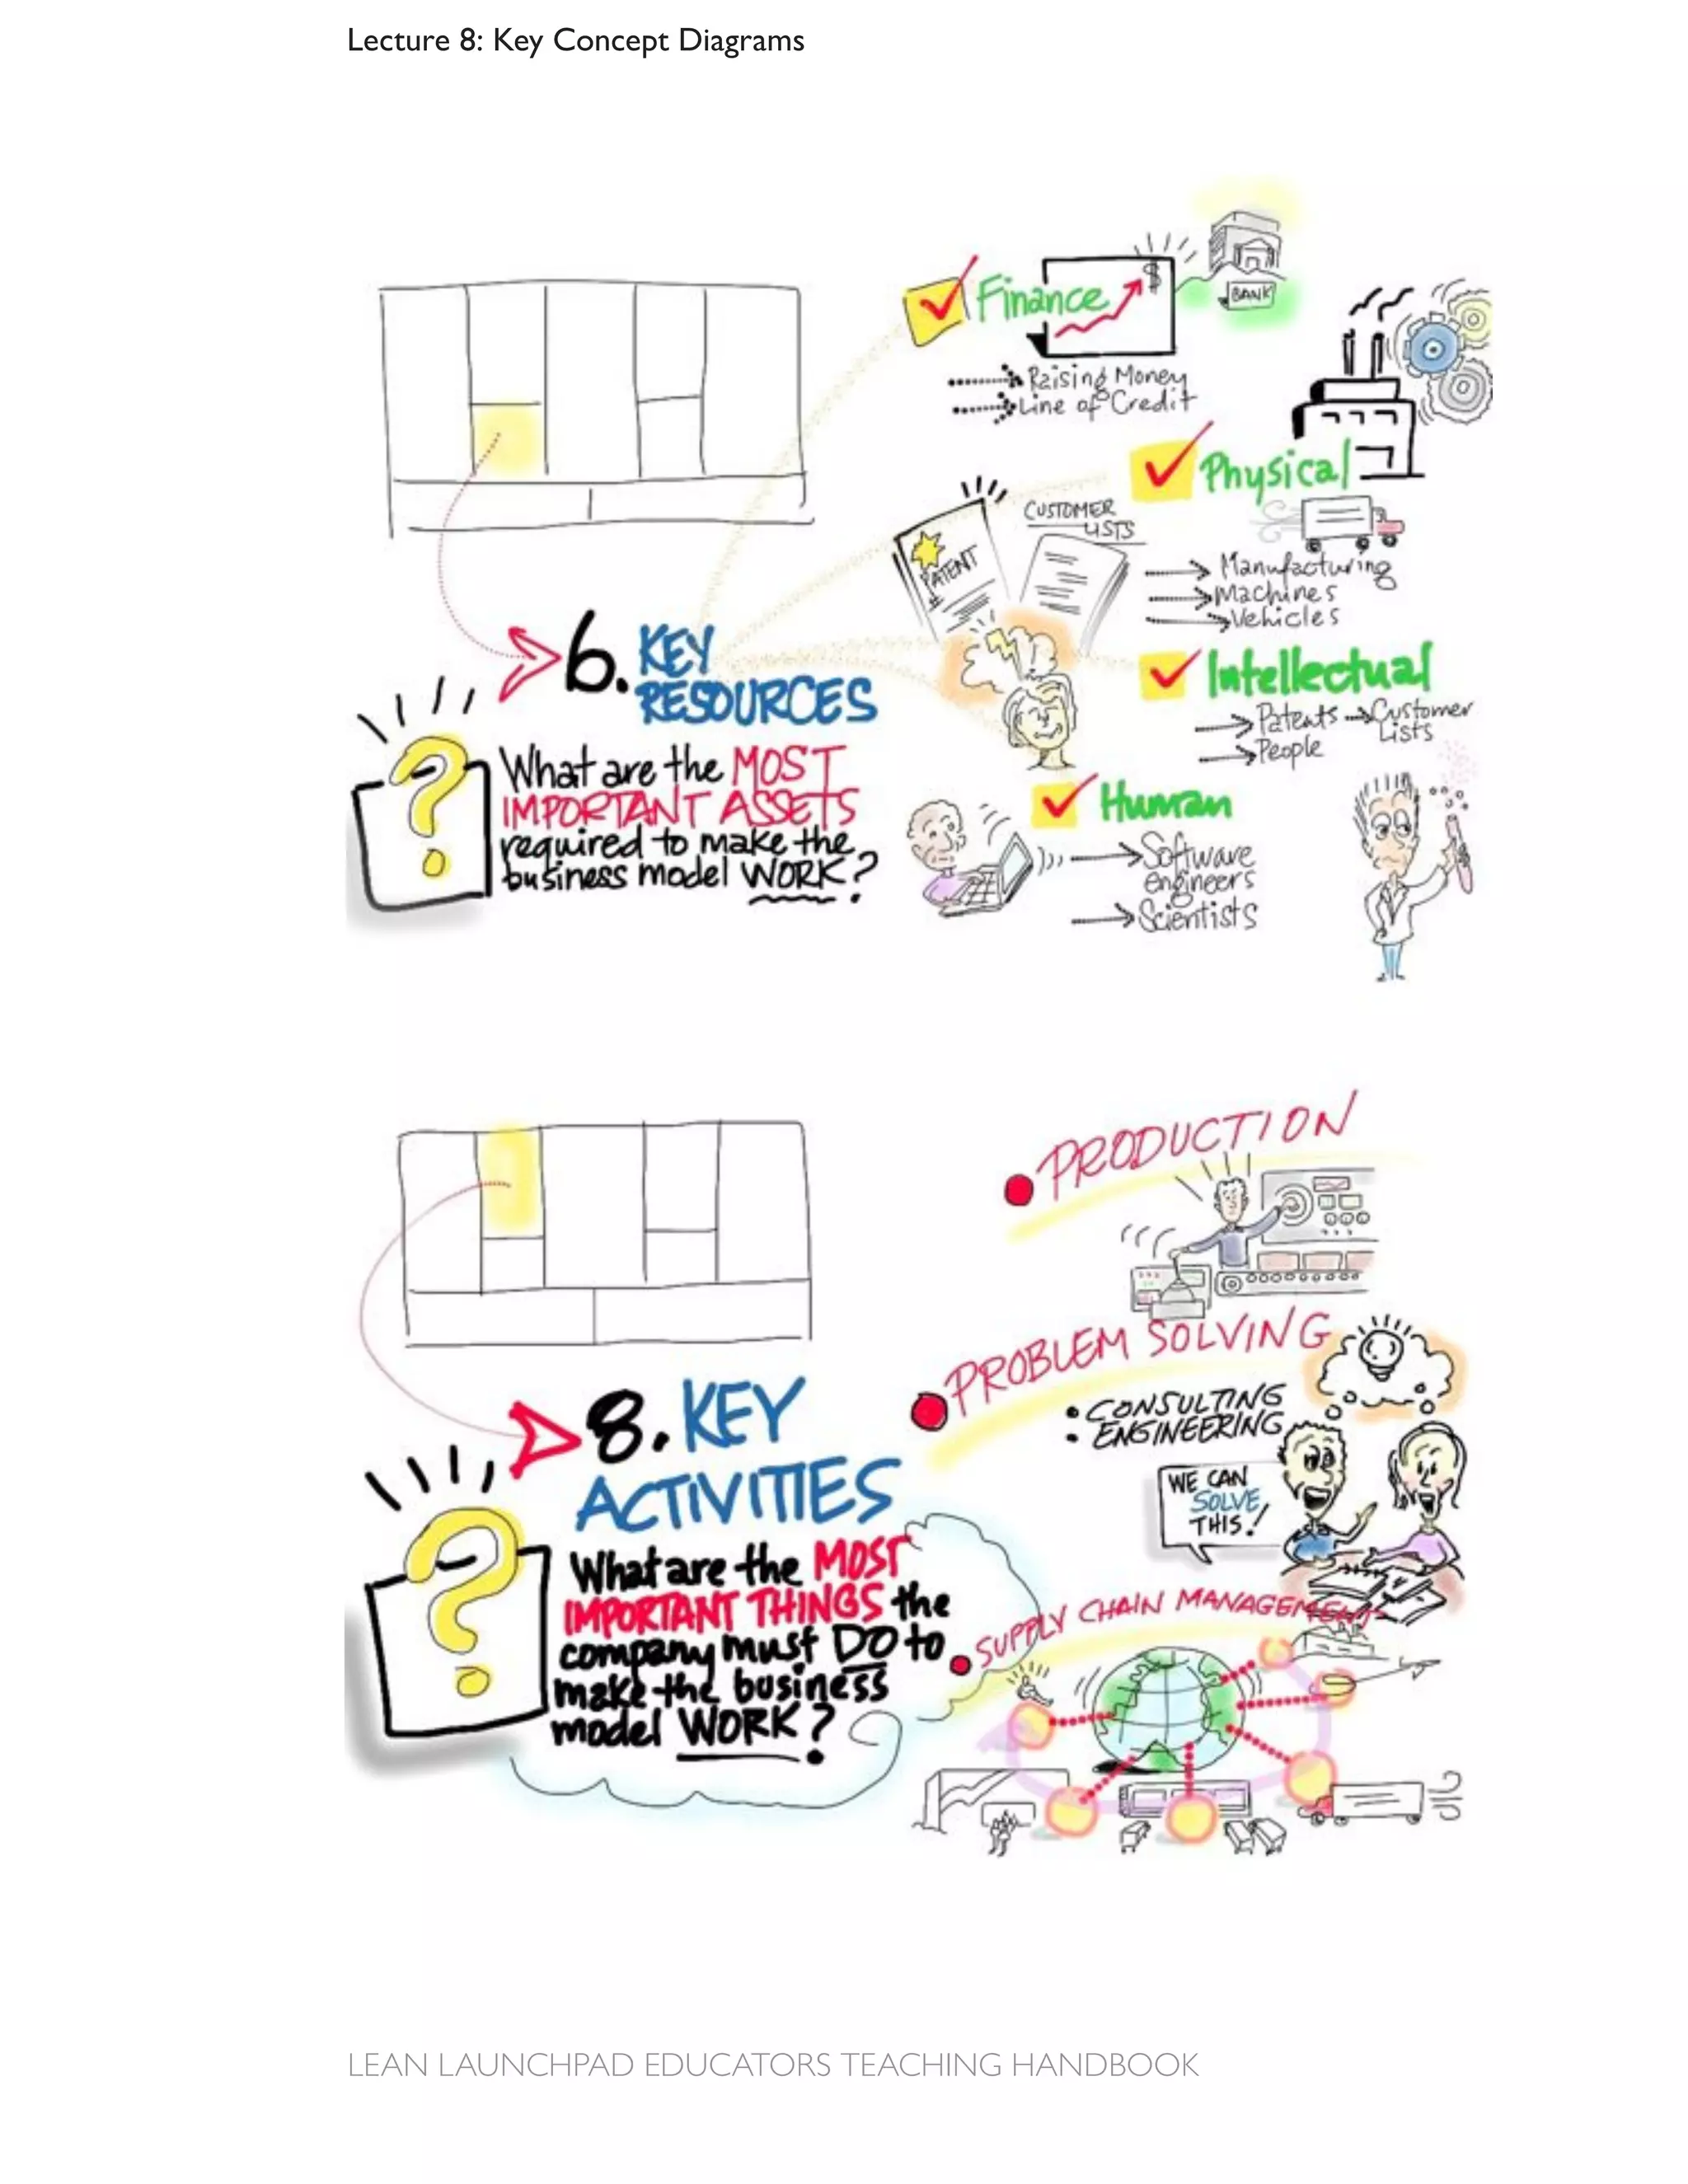 Lecture 8: Key Concept Diagrams
Finance
$
BANK
Raising Money
Line of Credit
Physical
Manufacturing
Machines
Vehicles
PATENT
#
CUSTOMER
LISTS
Intellectual
Patents Customer
Lists
People
Human
Software
engineers
Scientists
6. KEY
RESOURCES
?
What are the MOST
IMPORTANT ASSETS
required to make the
business model WORK?
PRODUCTION
PROBLEM SOLVING
• CONSULTING
• ENGINEERING
WE CAN
SOLVE
THIS!
SUPPLY CHAIN MANAGEMENT
8. KEY
ACTIVITIES
?
What are the MOST
IMPORTANT THINGS the
company must DO to
make the business
model WORK?
LEAN LAUNCHPAD EDUCATORS TEACHING HANDBOOK